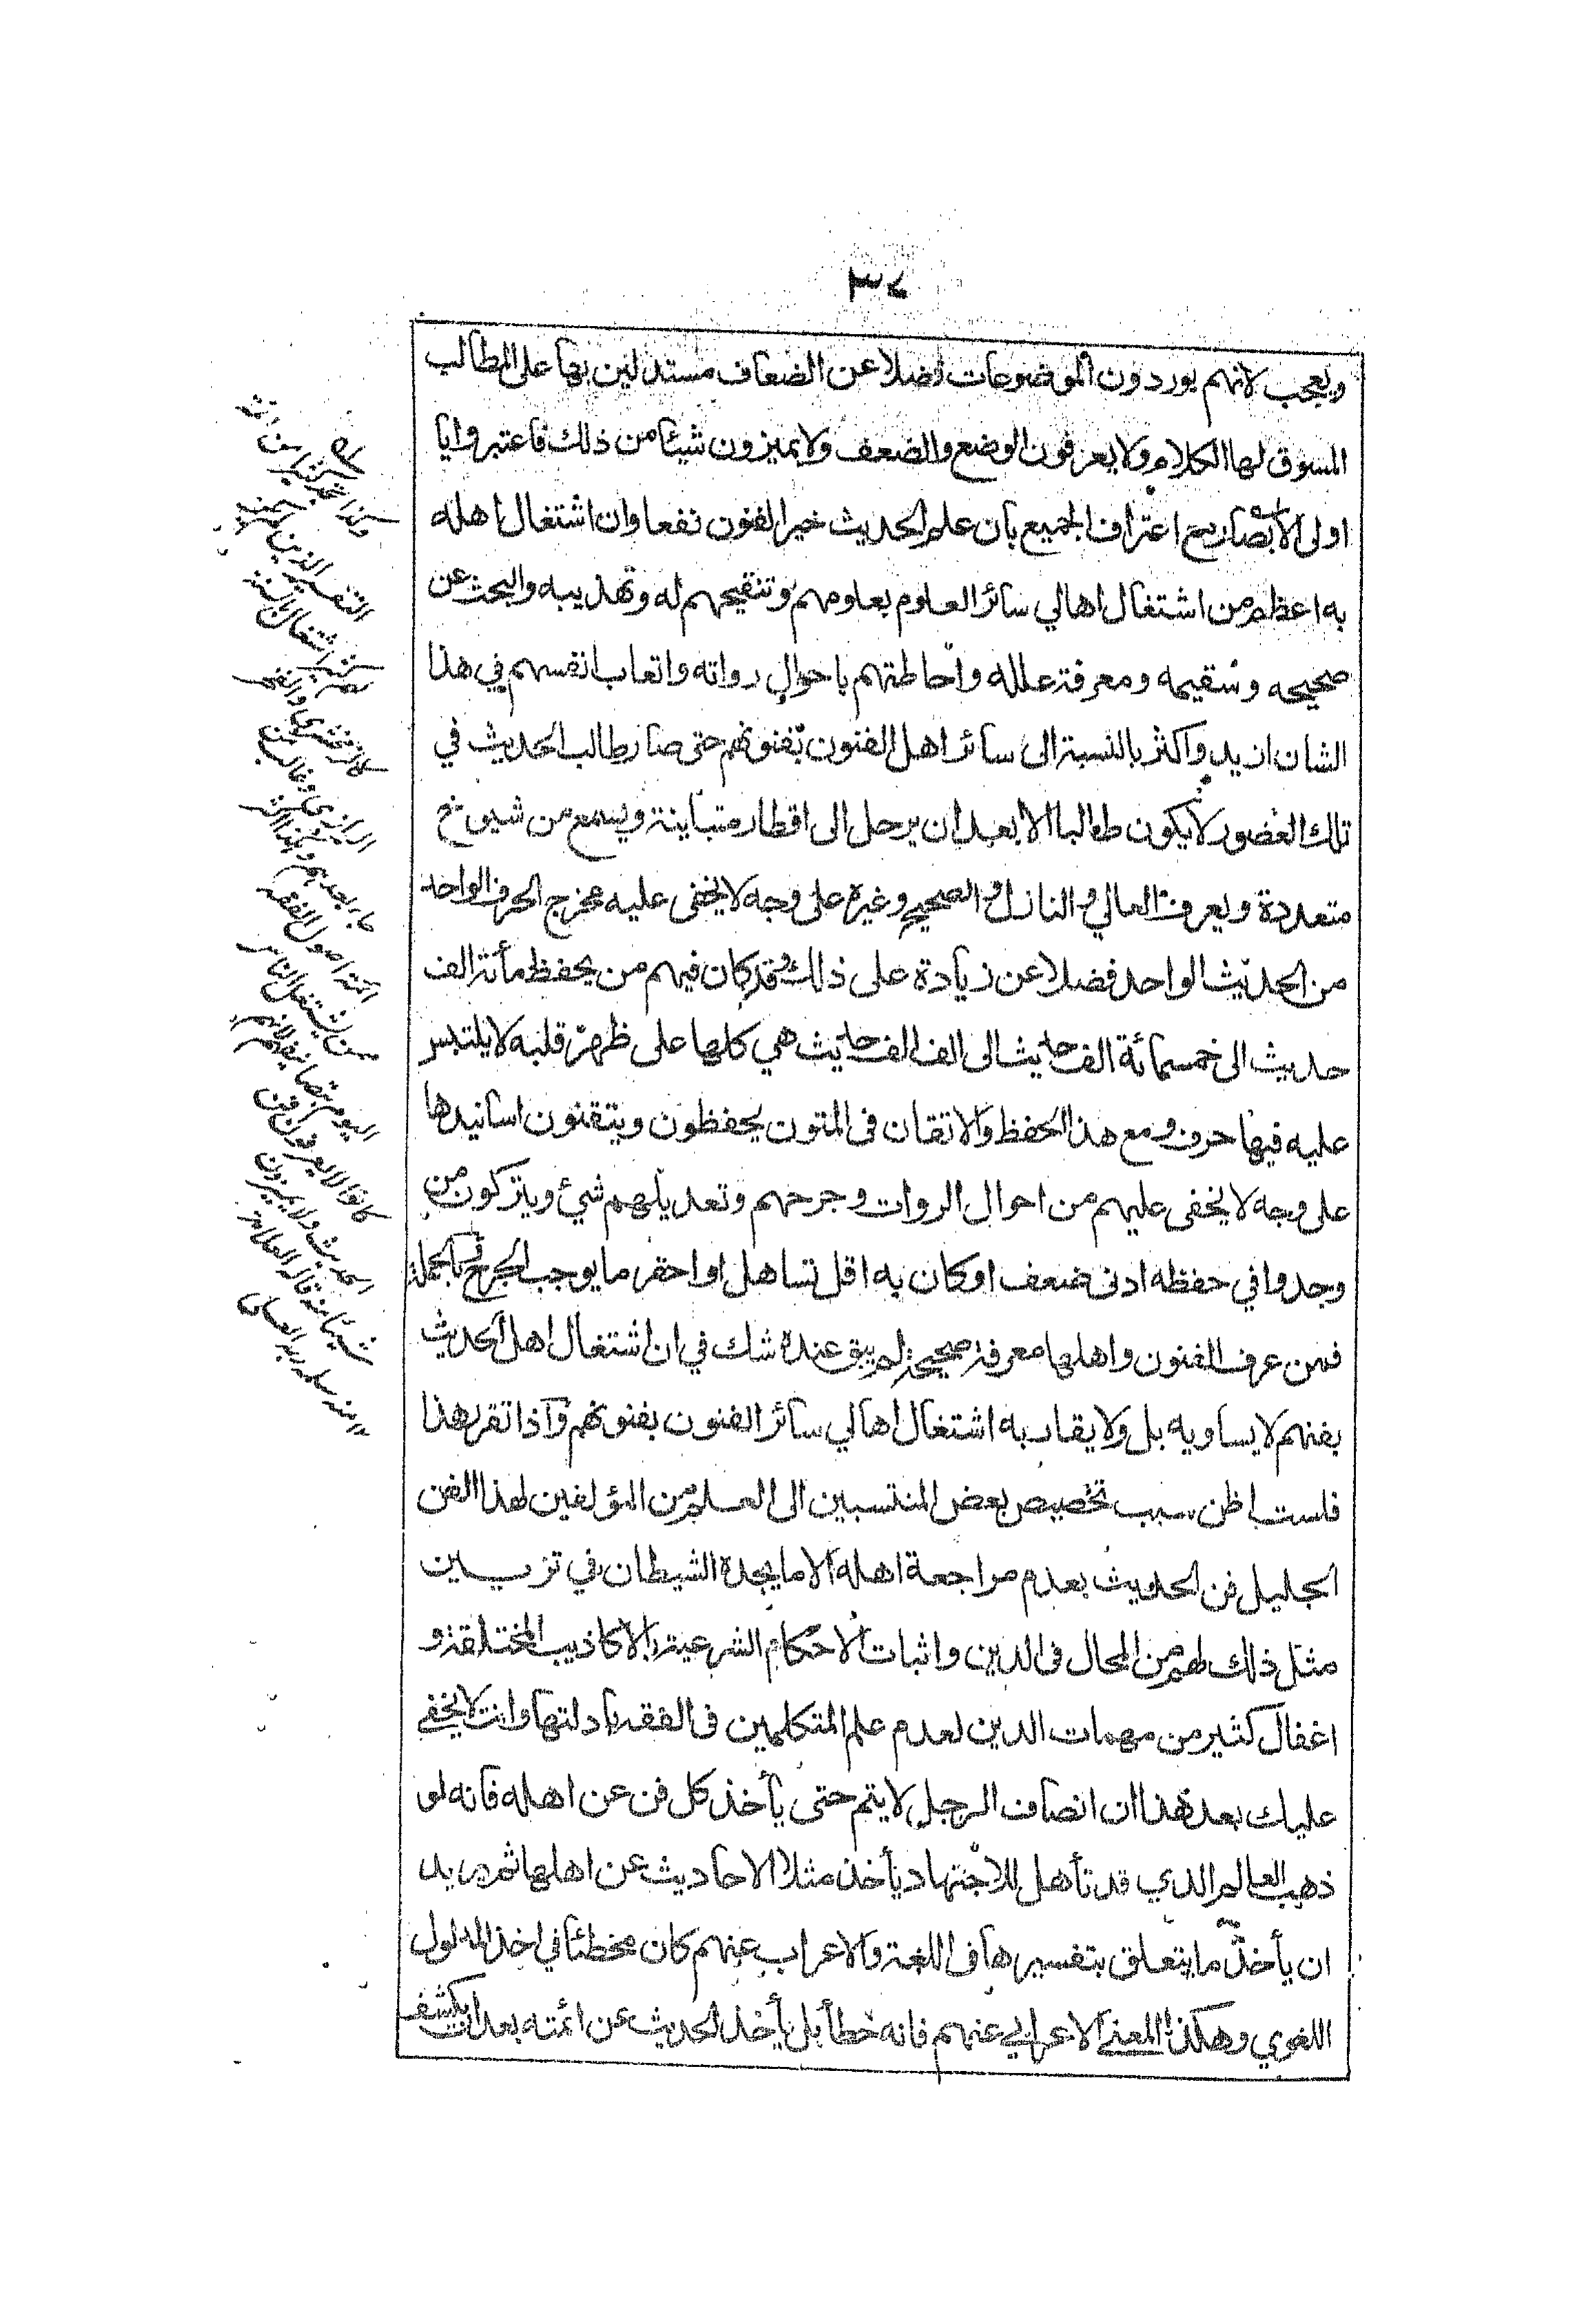 ٣٤
ويعجب لانهم يوردون الموضوعات فضلا عن الضعاف مستدلين بها على المطالب
المسوق لها الكلام ولا يعرفون الوضع والضعف ولا يميزون شيئا من ذلك فاعتبروا يا
اولى الابصار مع اعتراف الجميع بان علم الحديث خير الفنون نفعا وان اشتغال اهله
به اعظم من اشتغال اهالي سائر العلوم بعلومهم وتنقيحهم له وتهذيبه والبحث عن
صحيحه وسقيمه ومعرفة علله واحاطتهم باحوال رواته واتعاب انفسهم في هذا
الشان ازيد واكثر بالنسبة الى سائر اهل الفنون بفنونهم حتى صار طالب الحديث في
تلك العصور لا يكون طالبا الا بعد ان يرحل الى اقطار متباينة ويسمع من شيوخ
متعددة ويعرف العالي والنازل والصحيح وغيره على وجه لا يخفى عليه مخرج الحرف الواحد
من الحديث الواحد فضلا عن زيادة على ذلك وقد كان فيهم من يحفظ مأئة الف
حديث الى خمسمائة الف حديث الى الف الف حديث هي كلها على ظهر قلبه لا يلتبس
عليه فيها حرف ومع هذا الحفظ والاتقان فى المتون يحفظون ويتقنون اسانيدها
على وجه لا يخفى عليهم من احوال الروات وجرحهم وتعديلهم شيء ويتركون من
وجدوا في حفظه ادنى ضعف او كان به اقل تساهل او احقر ما يوجب الجرح وبالجملة
فمن عرف الفنون واهلها معرفة صحيحة لم يبق عنده شك في ان اشتغال اهل الحديث
بفنهم لا يساويه بل ولا يقاربه اشتغال اهالي سائر الفنون بفنونهم واذا تقرر هذا
فلست اظن سبب تخصيص بعض المنتسبين الى العلم من المؤلفين لهذا الفن
الجليل فن الحديث بعدم مراجعة اهله الا ما يجده الشيطان في تزيين
مثل ذلك لهم من المحال فى الدين واثبات الاحكام الشرعية بالاكاذيب المختلقة و
اغفال كثير من مهمات الدين لعدم علم المتكلمين فى الفقه بادلتها وانت لا يخفى
عليك بعد هذا ان انصاف الرجل لا يتم حتى يأخذ كل فن عن اهله فانه لو
ذهب العالم الذي قد تأهل للاجتهاد يأخذ مثلا الاحاديث عن اهلها ثم يريد
ان يأخذ ما يتعلق بتفسيرها في اللغة والاعراب عنهم كان مخطئا في اخذ المدلول
اللغوي وهكذا المعنى الاعرابي عنهم فانه خطأ بل يأخذ الحديث عن ائمته بعد ان يكشف
التفسير الذين
كالزمخشرى والفخر
الرازى وغالب من
ائمة اصول الفقه
كانوا لا يعرفون فن
الحديث ولا يميزون
شيئا منه قاله العلامة